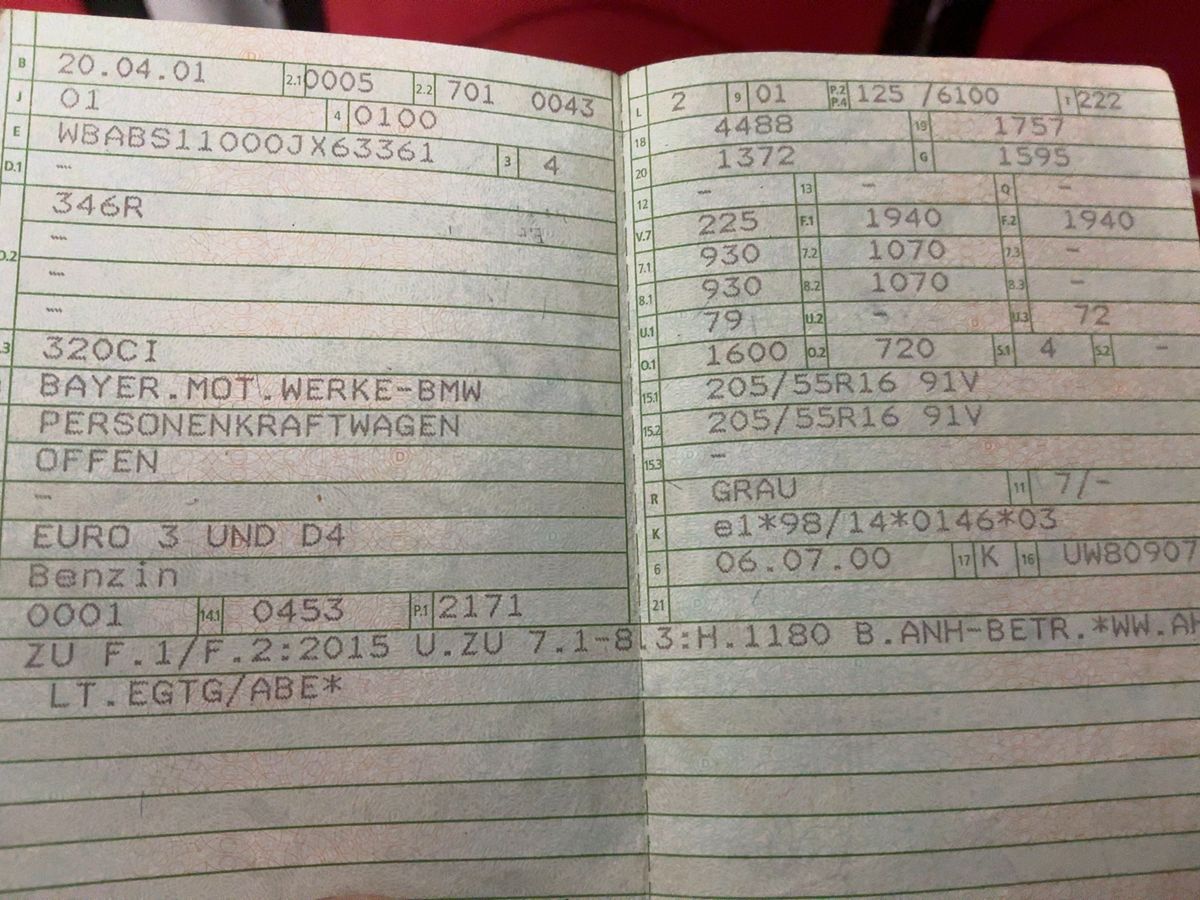 B 20.04.01 2.1 0005 2.2 701 0043
J 01 4 0100
E WBABS11000JX63361 3 4
D.1 -
346R
-
-
-
320CI
BAYER.MOT.WERKE-BMW
PERSONENKRAFTWAGEN
OFFEN
-
EURO 3 UND D4
Benzin
0001 14.1 0453 P.1 2171
L 2 9 01 P.2 P.4 125 /6100 T 222
18 4488 19 1757
20 1372 G 1595
12 - 13 - Q -
V.7 225 F.1 1940 F.2 1940
7.1 930 7.2 1070 7.3 -
8.1 930 8.2 1070 8.3 -
U.1 79 U.2 - U.3 72
O.1 1600 O.2 720 S.1 4 S.2 -
15.1 205/55R16 91V
15.2 205/55R16 91V
15.3 -
R GRAU 11 7/-
K e1*98/14*0146*03
6 06.07.00 17 K 16 UW80907
21
ZU F.1/F.2:2015 U.ZU 7.1-8.3:H.1180 B.ANH-BETR.*WW.AH
LT.EGTG/ABE*